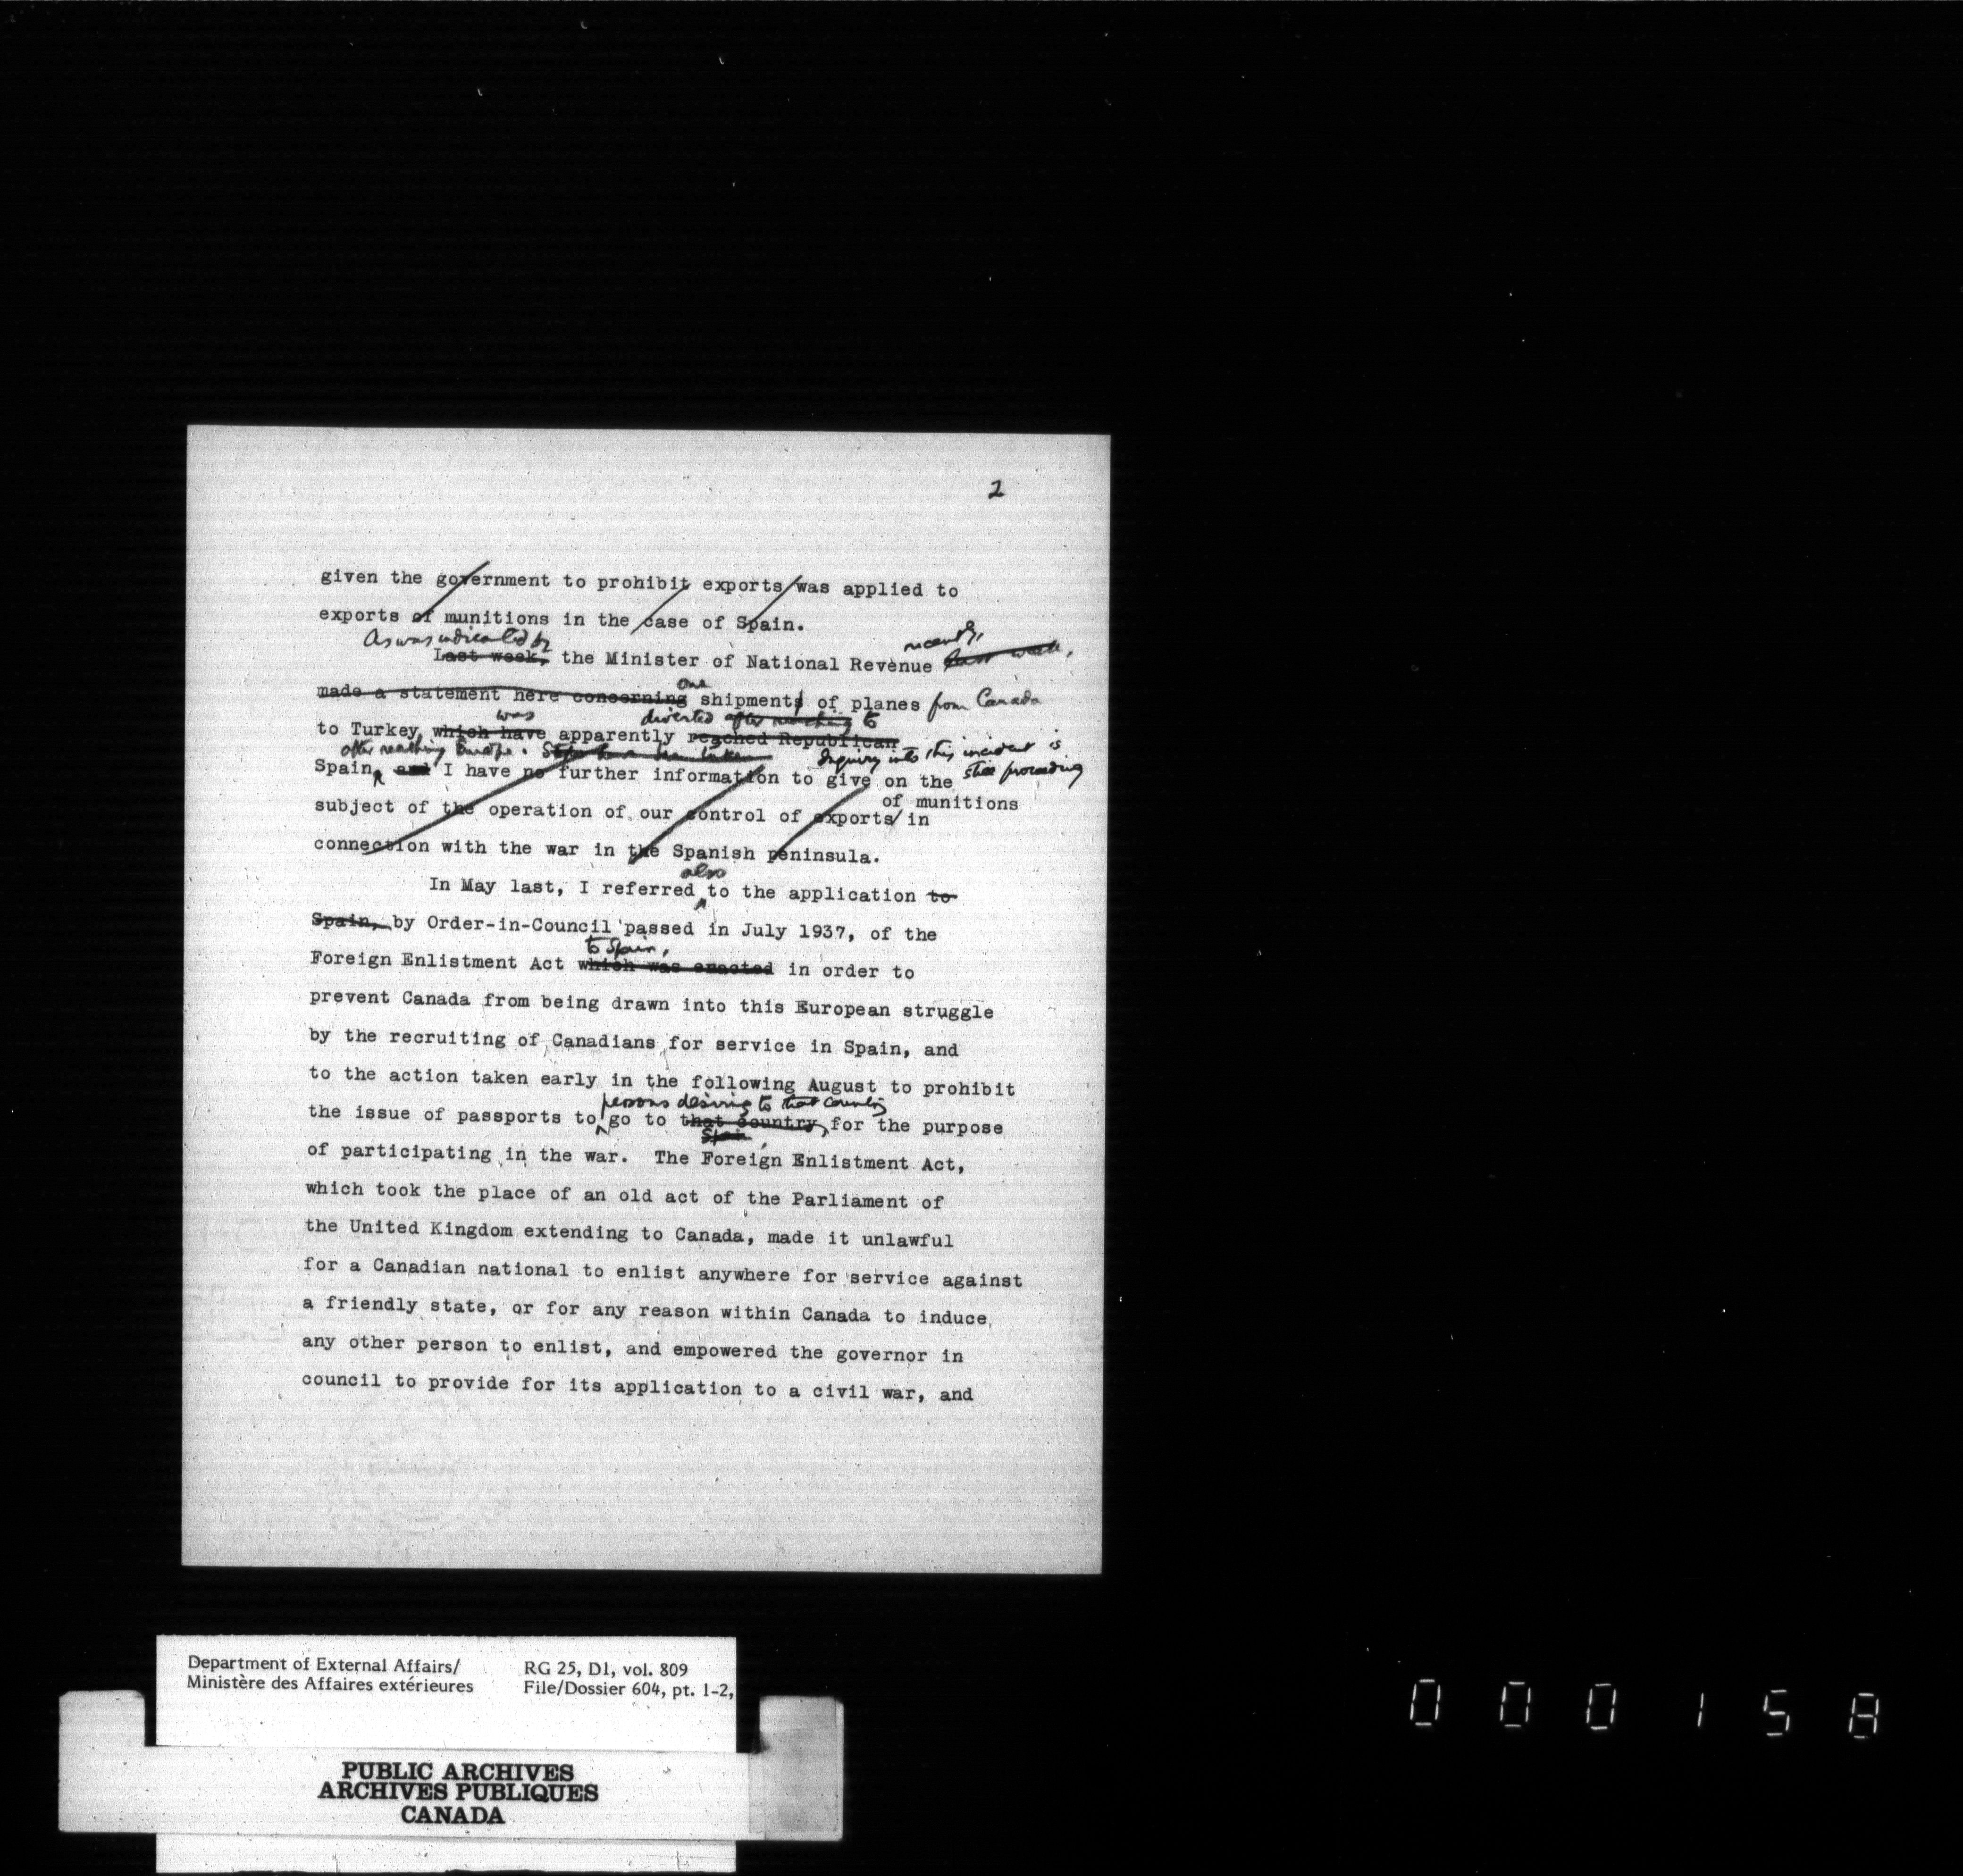 2
given the government to prohibit exports was applied to
exports of munitions in the case of Spain.
As was indicated by recently,
Last week, the Minister of National Revenue last week,
one
made a statement here concerning shipments of planes from Canada
was diverted after reaching to
to Turkey, which have apparently reached Republican
after reaching Europe. Steps have been taken Inquiry into this incident is
Spain, and I have no further information to give on the still proceeding
of munitions
subject of the operation of our control of exports/in
connection with the war in the Spanish peninsula.
also
In May last, I referred to the application to
Spain, by Order-in-Council passed in July 1937, of the
to Spain,
Foreign Enlistment Act which was enacted in order to
prevent Canada from being drawn into this European struggle
by the recruiting of Canadians for service in Spain, and
to the action taken early in the following August to prohibit
persons desiring to that country
the issue of passports to go to that country, for the purpose
Spain
of participating in the war. The Foreign Enlistment Act,
which took the place of an old act of the Parliament of
the United Kingdom extending to Canada, made it unlawful
for a Canadian national to enlist anywhere for service against
a friendly state, or for any reason within Canada to induce
any other person to enlist, and empowered the governor in
council to provide for its application to a civil war, and
Department of External Affairs/ RG 25, D1, vol. 809
Ministère des Affaires extérieures File/Dossier 604, pt. 1-2,
PUBLIC ARCHIVES
ARCHIVES PUBLIQUES
CANADA
000158